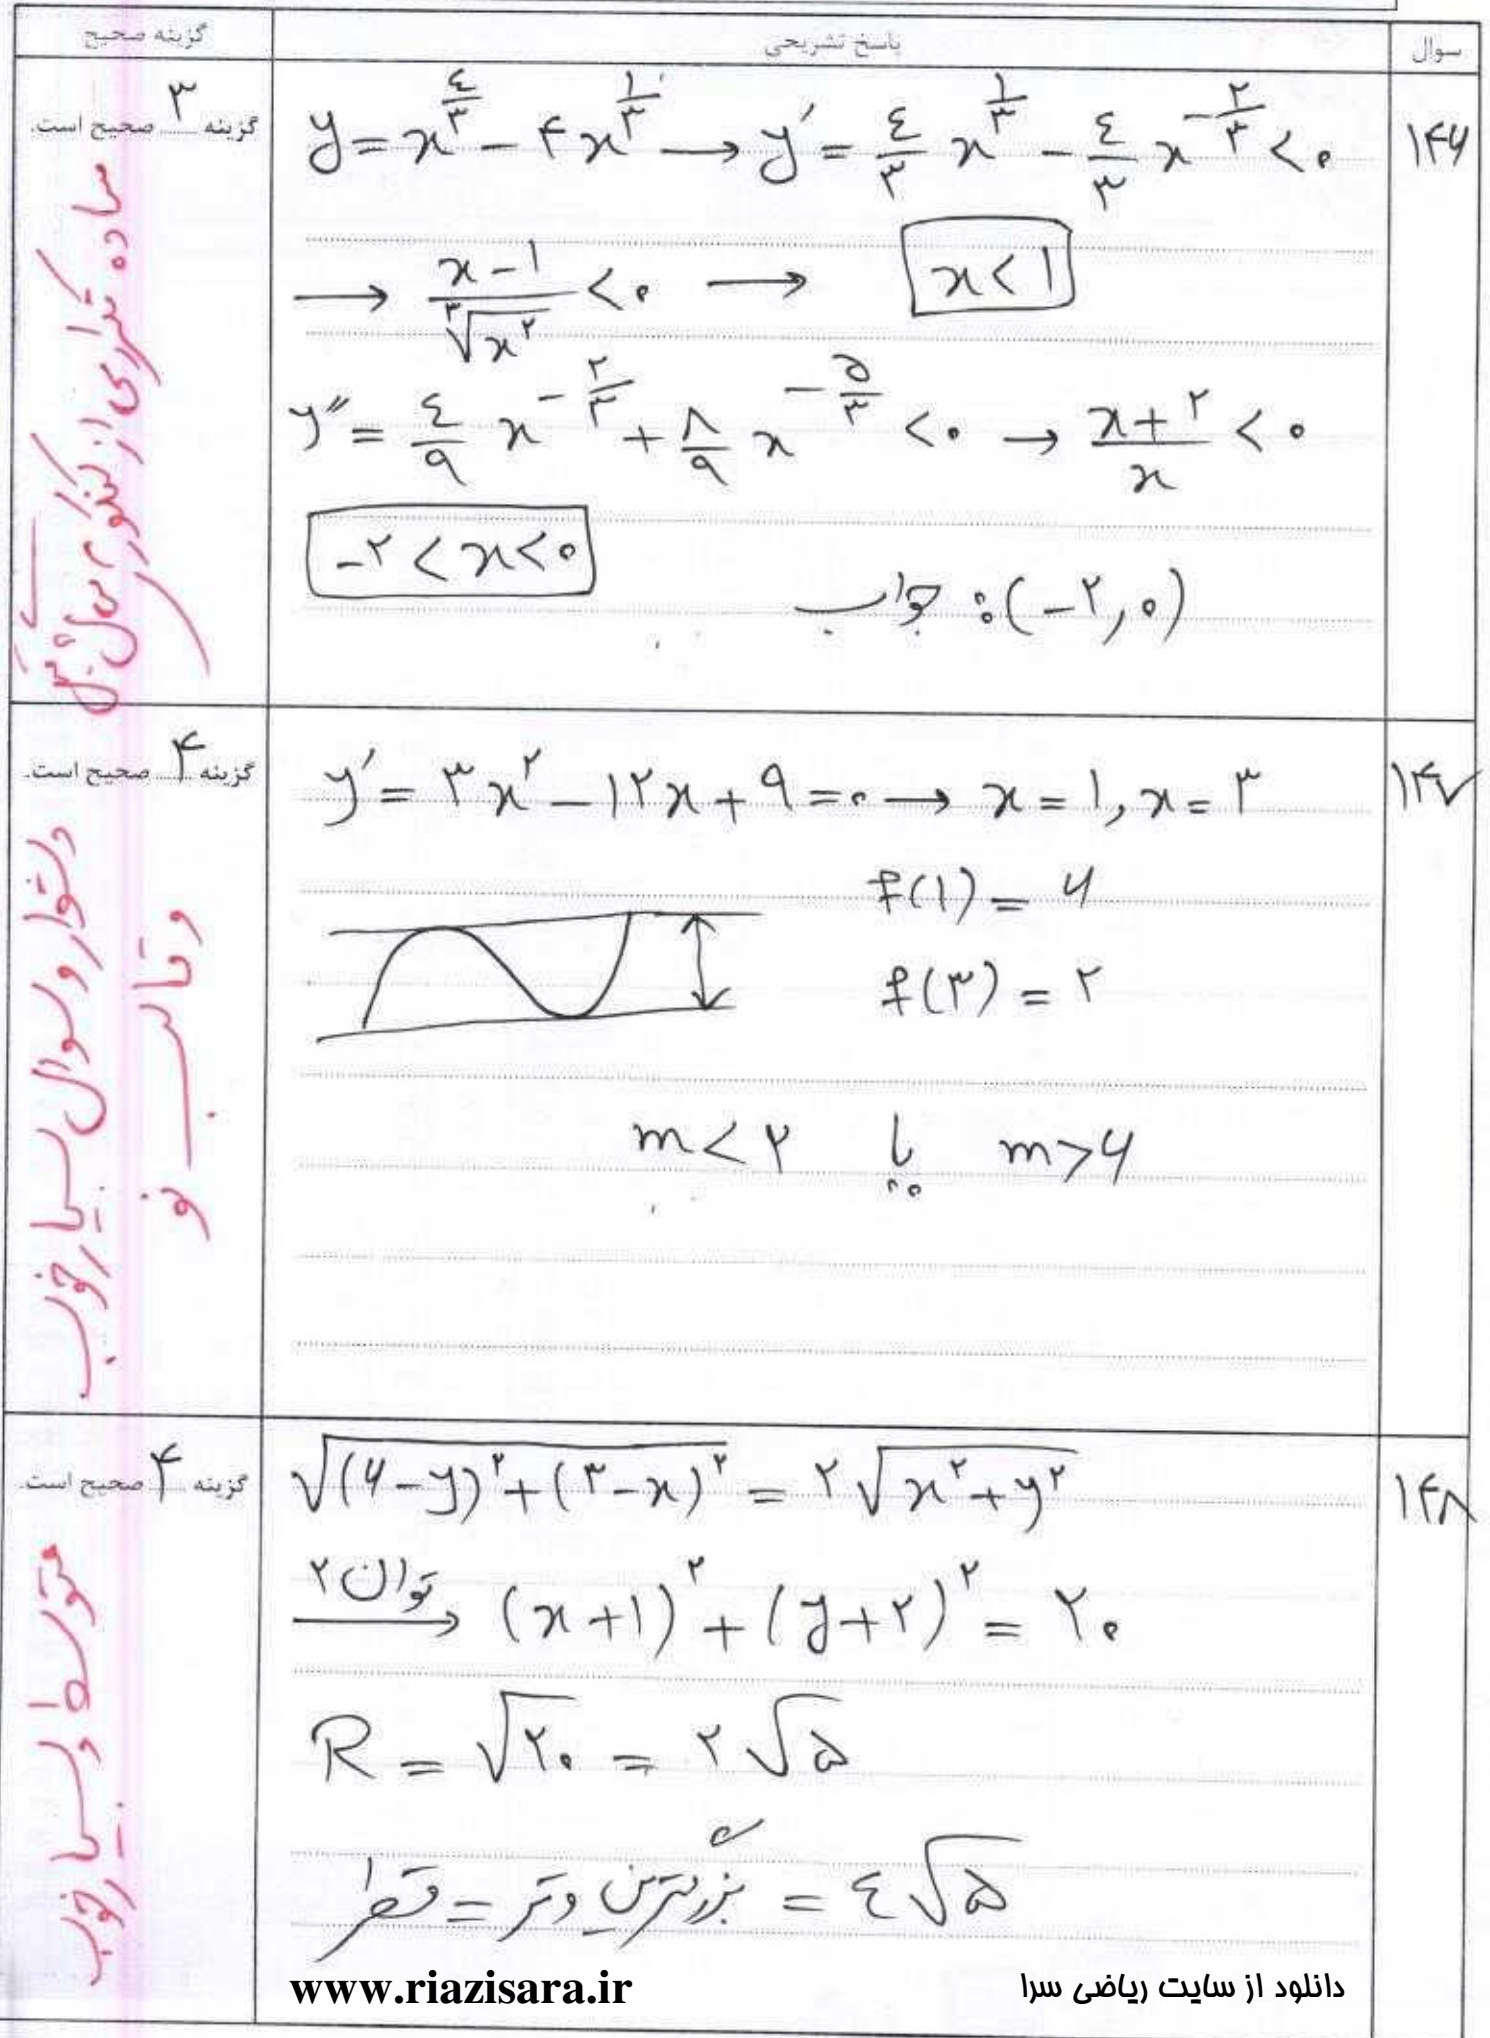 سوال پاسخ تشریحی گزینه صحیح
۱۴۶
y = x^{۴/۳} - ۴x^{۱/۳} → y' = ۴/۳ x^{۱/۳} - ۴/۳ x^{-۲/۳} < ۰
→ (x-۱)/∛(x^۲) < ۰ → x < ۱
y'' = ۴/۹ x^{-۲/۳} + ۸/۹ x^{-۵/۳} < ۰ → (x+۲)/x < ۰
-۲ < x < ۰
جواب : (-۲, ۰)
گزینه ۳ صحیح است.
ساده تکراری از کنکور سال پیش
۱۴۷
y' = ۳x^۲ - ۱۲x + ۹ = ۰ → x = ۱, x = ۳
f(۱) = ۶
f(۳) = ۲
m < ۲ یا m > ۶
گزینه ۴ صحیح است.
دشوار و سوال بسیار خوب
و قالب نو
۱۴۸
√((۶-y)^۲ + (۳-x)^۲) = ۲√(x^۲ + y^۲)
توان ۲ → (x+۱)^۲ + (y+۲)^۲ = ۲۰
R = √۲۰ = ۲√۵
قطر = بزرگترین وتر = ۴√۵
گزینه ۴ صحیح است.
متوسط و بسیار خوب
www.riazisara.ir دانلود از سایت ریاضی سرا